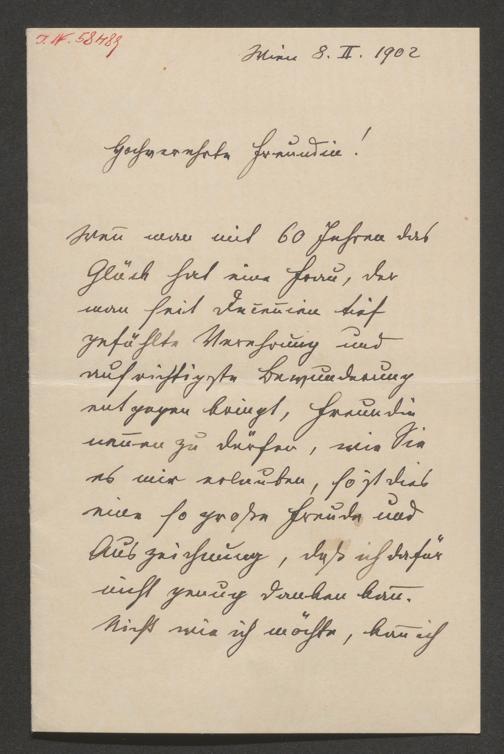 I.N. 58489
Wien 8. II. 1902
Hochverehrte Freundin!
Wen̄ man mit 60 Jahren das
Glück hat eine Frau, der
man seit Decen̄ien tief
gefühlte Verehrung und
aufrichtigste Bewunderung
entgegen bringt, Freundin
nen̄en zu dürfen, wie Sie
es mir erlauben, so ist dies
eine so große Freude und
Auszeichnung, daß ich dafür
nicht genug danken kan̄.
Nicht wie ich möchte, kan̄ ich